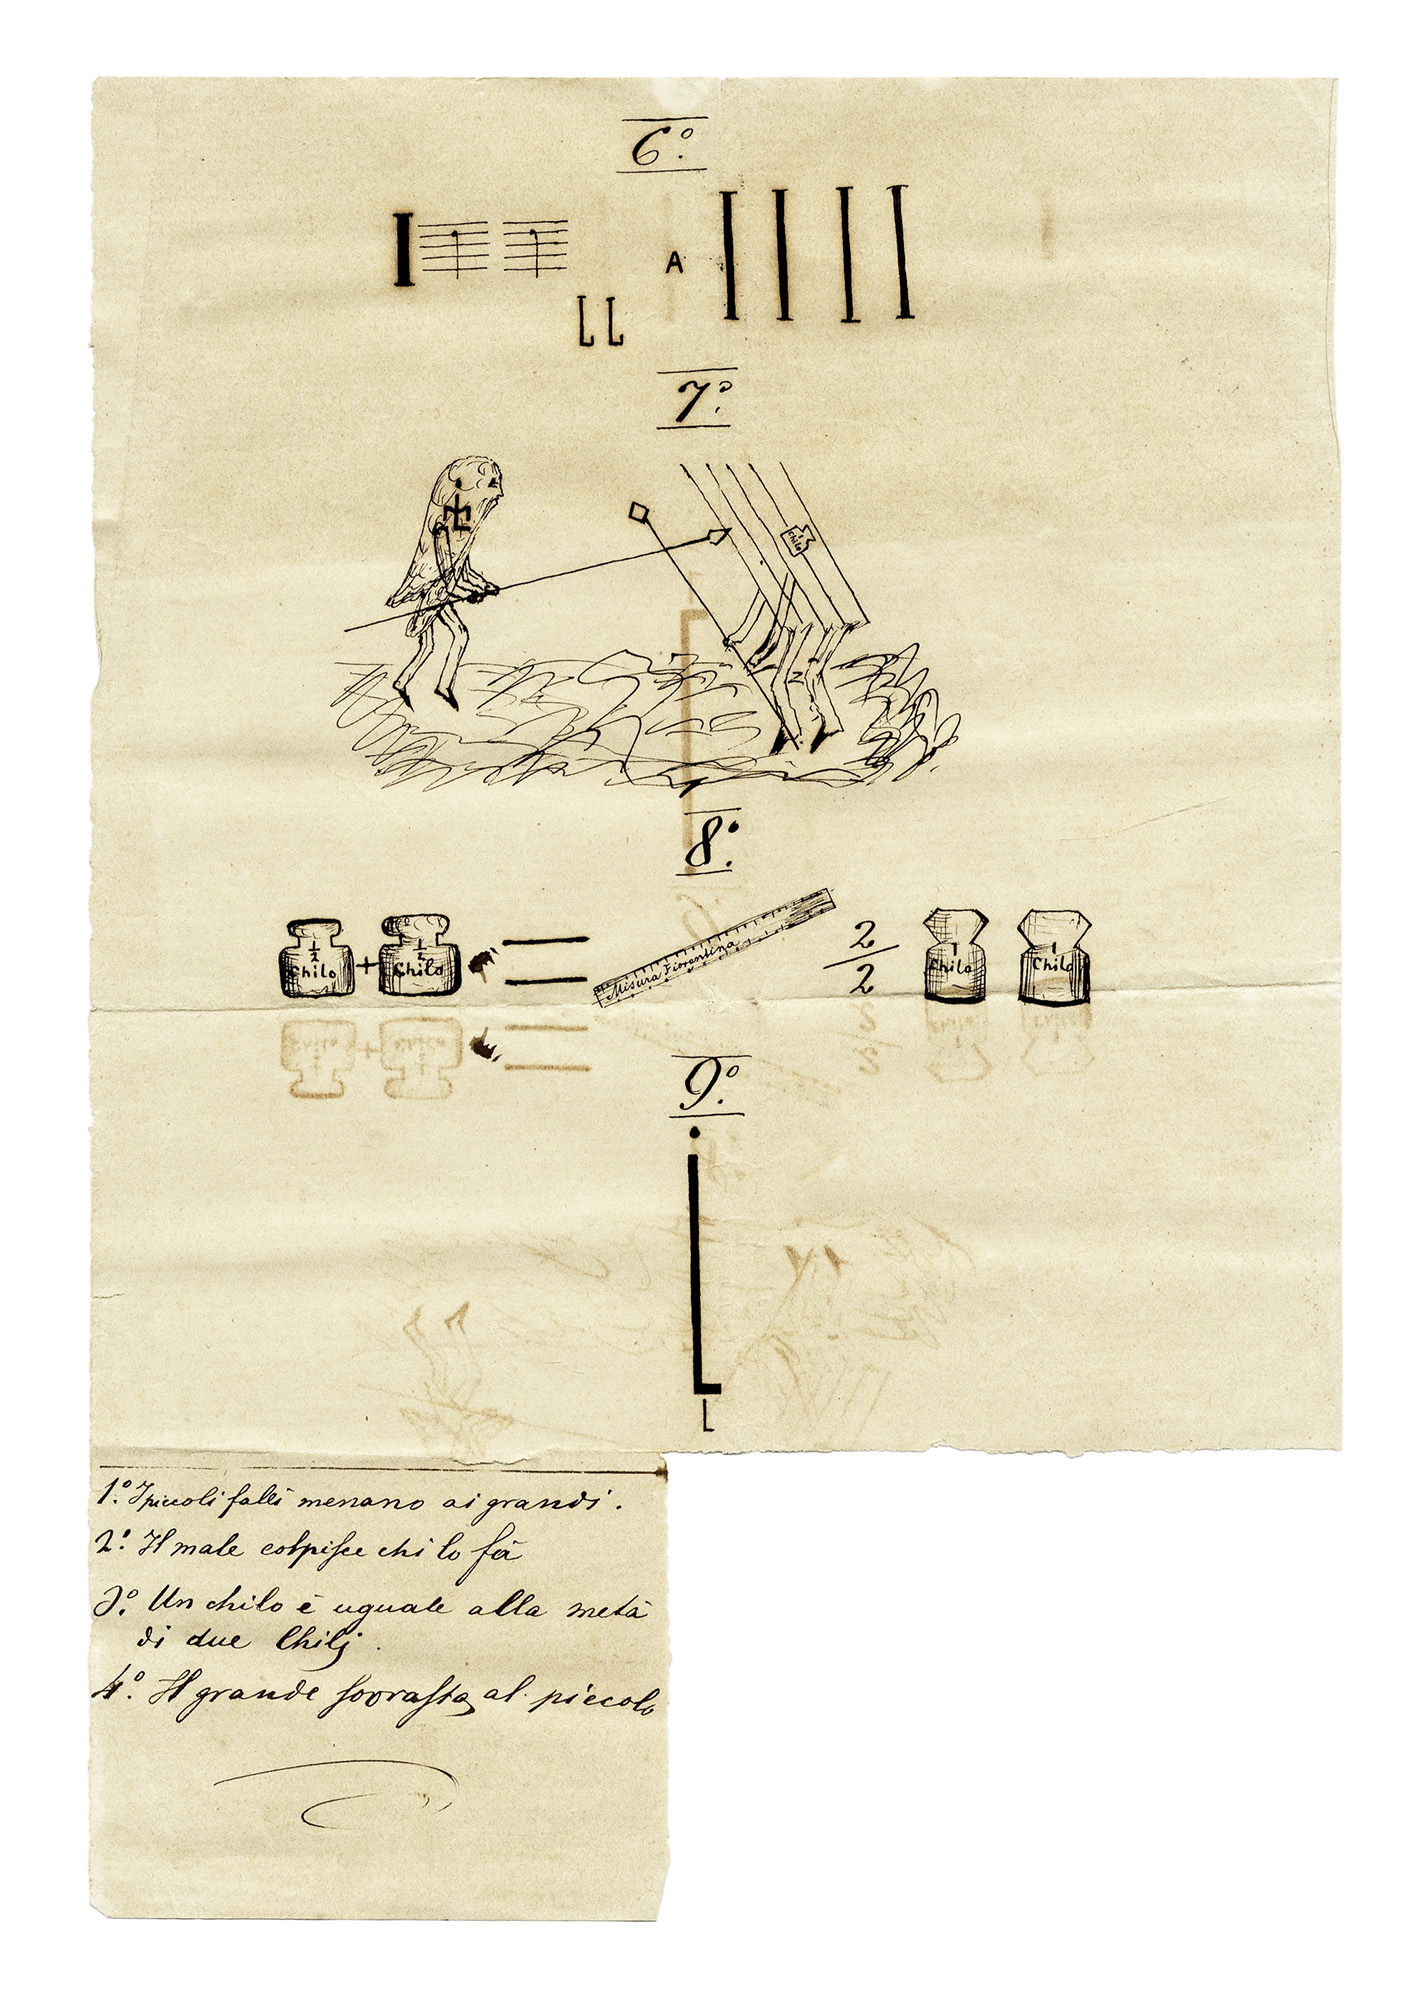 6º.
I
A
I I I I
L L
7º.
1 Chilo
8º.
1/2 Chilo + 1/2 Chilo = Misura Fiorentina 2/2 1 Chilo 1 Chilo
9º.
L
L
1º. I piccoli falli menano ai grandi.
2º. Il male colpisce chi lo fà
3º. Un chilo è uguale alla metà
di due Chilj.
4º. Il grande sovrasta al piccolo